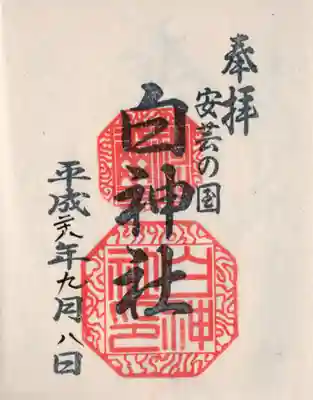 奉拝
安芸の国
白神社
平成二十八年九月八日
白神社印